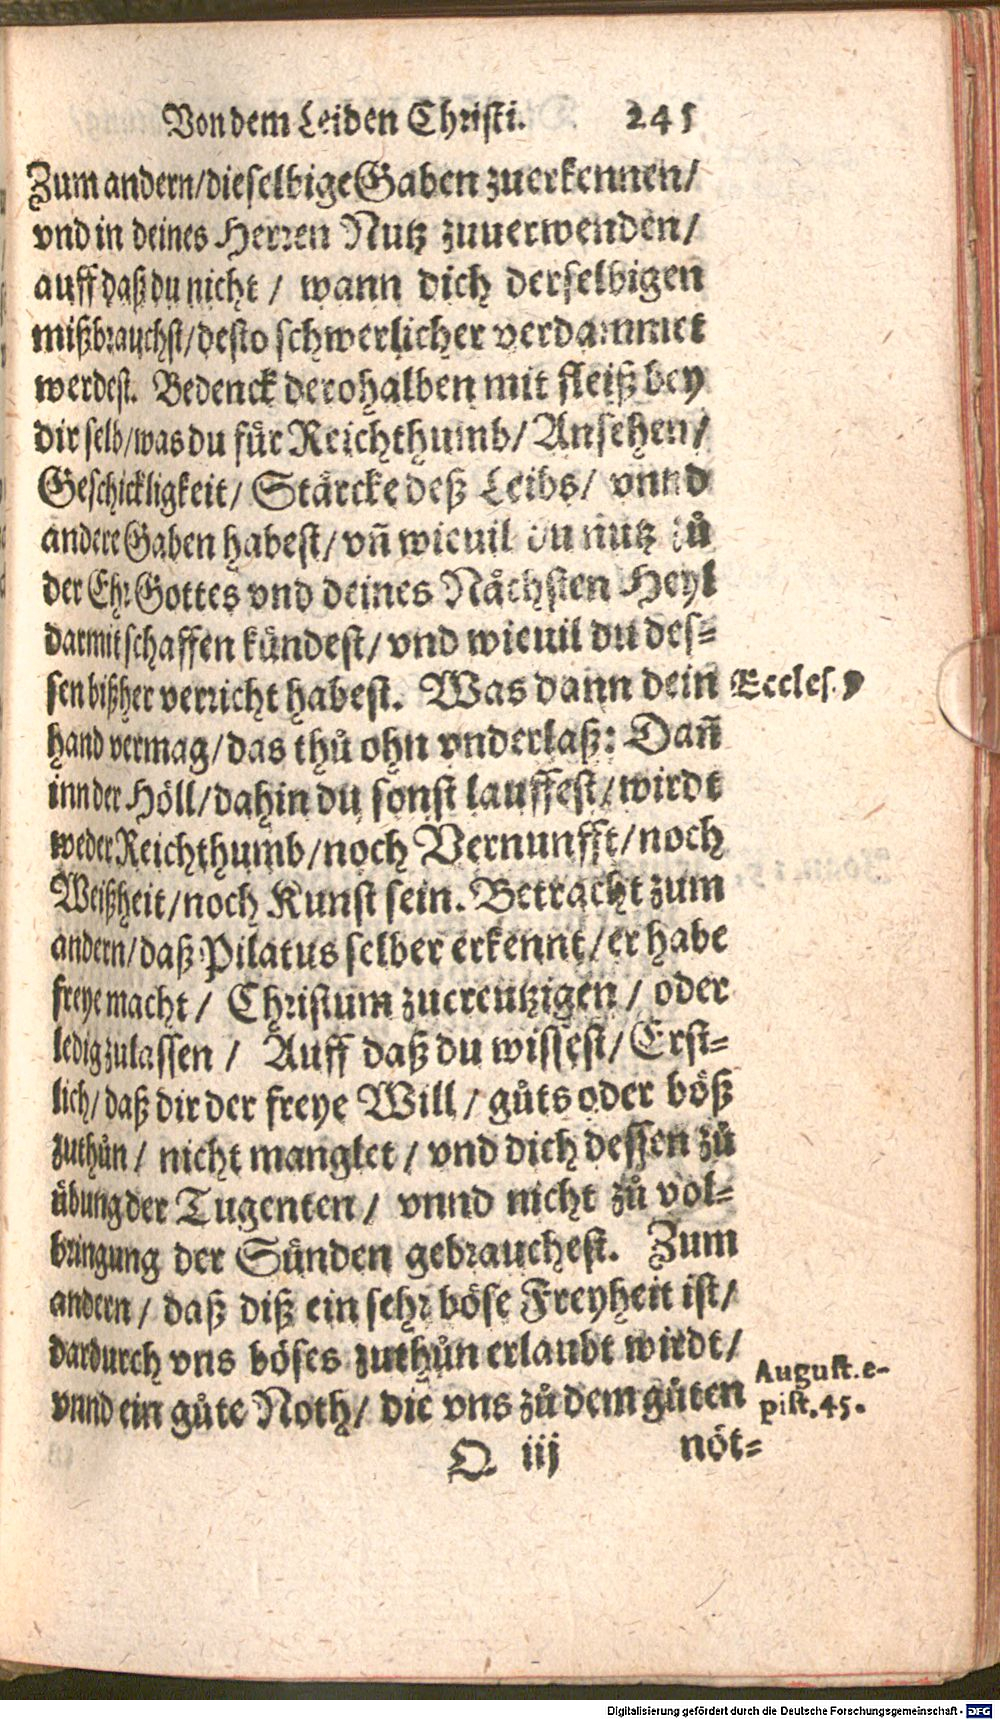 Von dem Leiden Christi. 245
Zum andern/ dieselbige Gaben zuerkennen/
vnd in deines Herren Nutz zuuerwenden/
auff daß du nicht/ wann dich derselbigen
mißbrauchst/ desto schwerlicher verdammet
werdest. Bedenck derohalben mit fleiß bey
dir selb/ was du für Reichthumb/ Ansehen/
Geschickligkeit/ Stärcke deß Leibs/ vnnd
andere Gaben habest/ vñ wieuil du nutz zů
der Ehr Gottes vnd deines Nächsten Heyl
darmit schaffen kündest/ vnd wieuil du des-
sen bißher verricht habest. Was dann dein Eccles. 9
hand vermag/ das thů ohn vnderlaß: Dañ
inn der Höll/ dahin du sonst lauffest/ wirdt
weder Reichthumb/ noch Vernunfft/ noch
Weißheit/ noch Kunst sein. Betracht zum
andern/ daß Pilatus selber erkennt/ er habe
freye macht/ Christum zucreutzigen/ oder
ledig zulassen/ Auff daß du wissest/ Erst-
lich/ daß dir der freye Will/ gůts oder böß
zuthůn/ nicht manglet/ vnd dich dessen zů
übung der Tugenten/ vnnd nicht zů vol-
bringung der Sünden gebrauchest. Zum
andern/ daß diß ein sehr böse Freyheit ist/
dardurch vns böses zuthůn erlaubt wirdt/
vnnd ein gůte Noth/ die vns zů dem gůten
August. e-
pist. 45.
Q iij nöt-
Digitalisierung gefördert durch die Deutsche Forschungsgemeinschaft - DFG